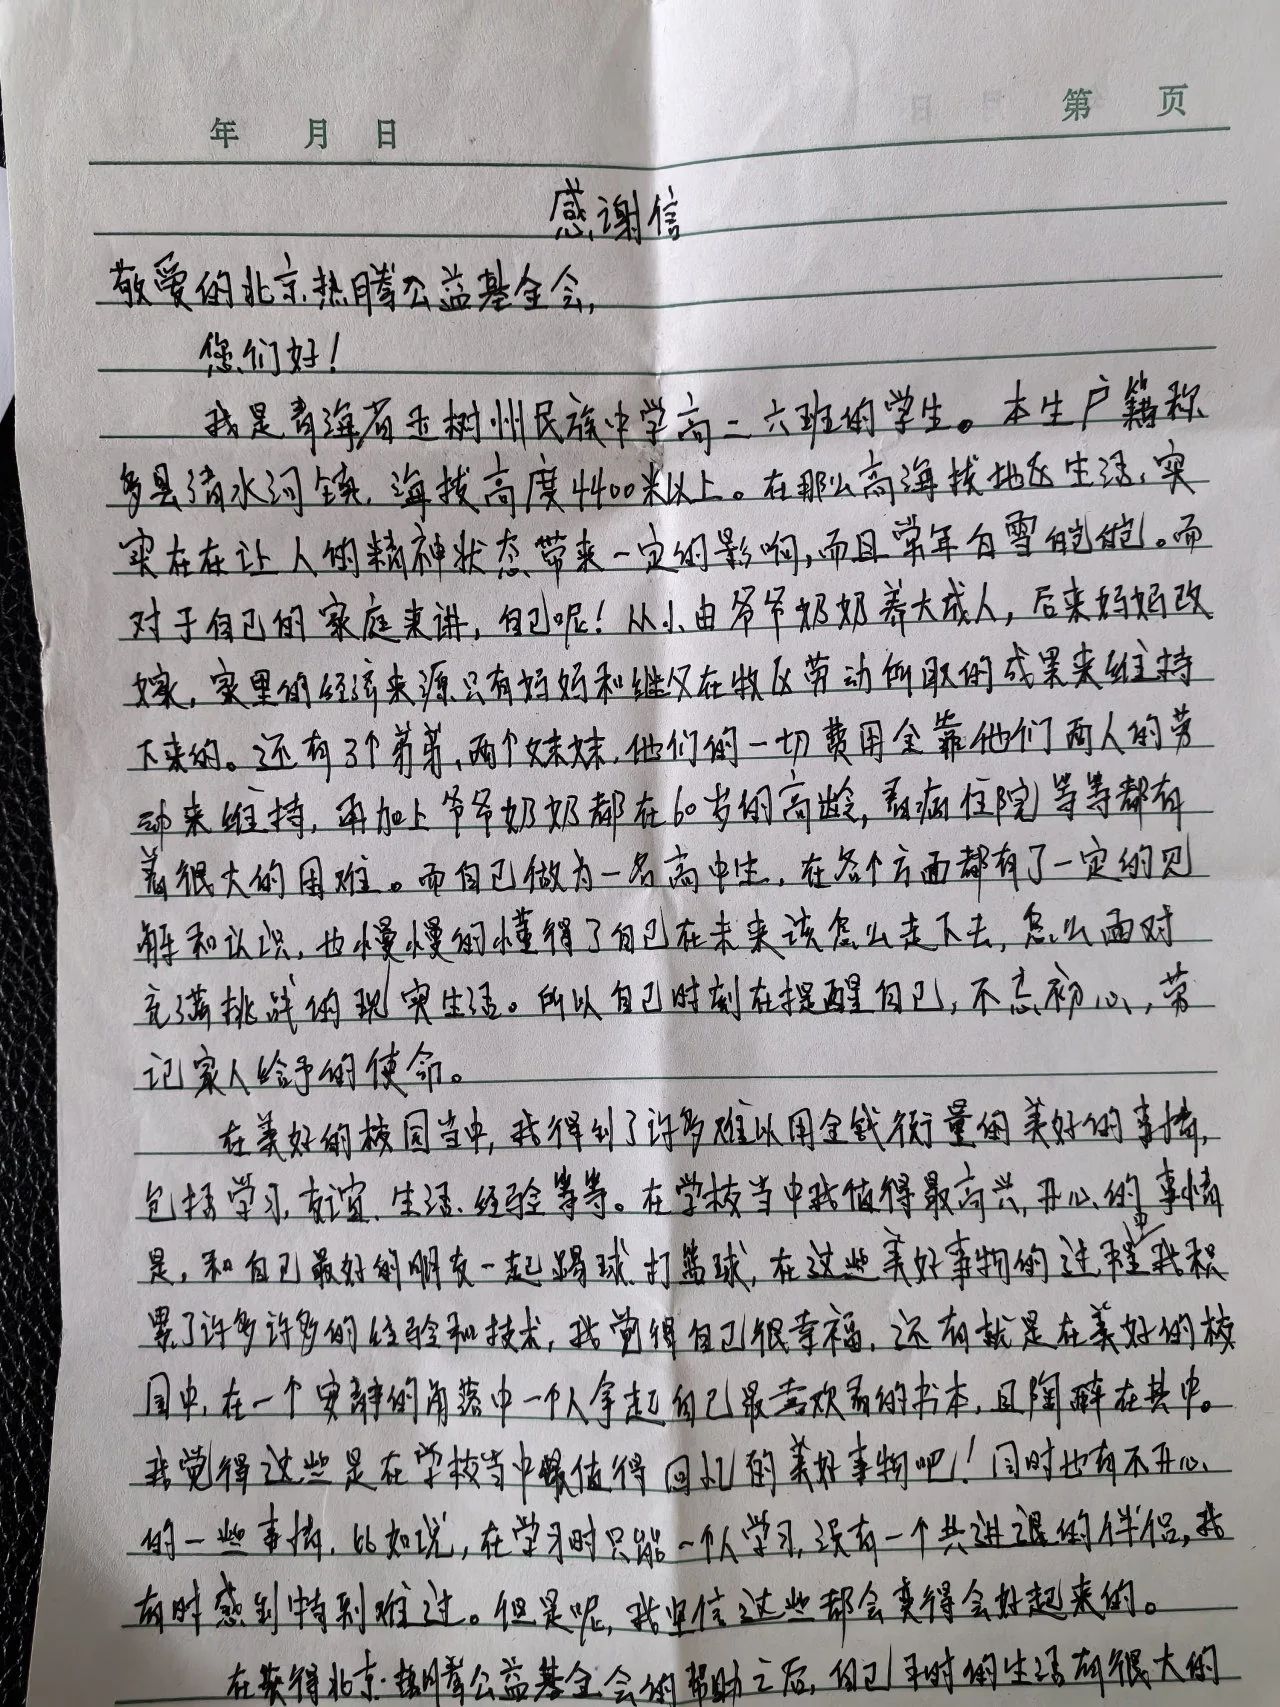 年 月 日
第 页
感谢信
敬爱的北京热腾公益基金会,
您们好!
我是青海省玉树州民族中学高二六班的学生。本生户籍称
多县清水河镇,海拔高度4400米以上。在那么高海拔地区生活,实
实在在让人的精神状态带来一定的影响,而且常年白雪皑皑。而
对于自己的家庭来讲,自己呢!从小由爷爷奶奶养大成人,后来妈妈改
嫁,家里的经济来源只有妈妈和继父在牧区劳动所取的成果来维持
下来的。还有3个弟弟、两个妹妹,他们的一切费用全靠他们两人的劳
动来维持,再加上爷爷奶奶都在60岁的高龄,看病住院等等都有
着很大的困难。而自己做为一名高中生,在各个方面都有了一定的见
解和认识,也慢慢的懂得了自己在未来该怎么走下去,怎么面对
充满挑战的现实生活。所以自己时刻在提醒自己,不忘初心,劳
记家人给予的使命。
在美好的校园当中,我得到了许多难以用金钱衡量的美好的事情,
包括学习、友谊、生活、经验等等。在学校当中我值得最高兴,开心的事情
是,和自己最好的朋友一起踢球、打篮球,在这些美好事物的过程中我积
累了许多许多的经验和技术,我觉得自己很幸福,还有就是在美好的校
园中,在一个安静的角落中一个人拿起自己最喜欢看的书本,且陶醉在其中。
我觉得这些是在学校当中最值得回忆的美好事物吧!同时也有不开心
的一些事情,比如说,在学习时只能一个人学习,没有一个共进退的伴侣,我
有时感到特别难过。但是呢,我坚信这些都会变得会好起来的。
在获得北京热腾公益基金会的帮助之后,自己平时的生活有很大的